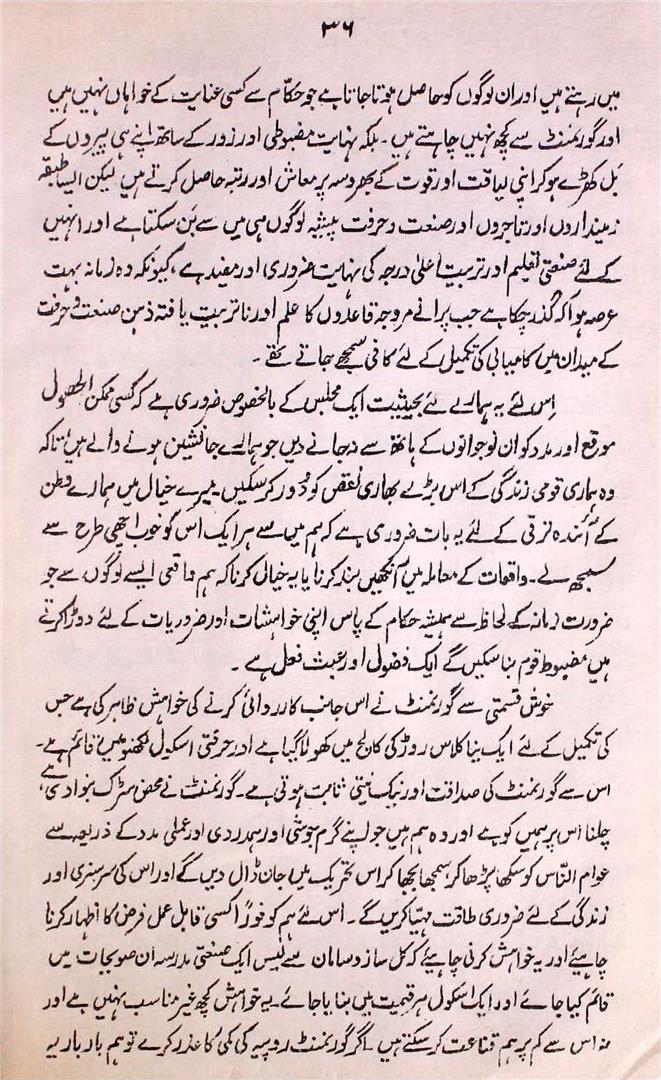 ۳۶
میں رہتے ہیں اور ان لوگوں کو حاصل ہوتا جاتا ہے جو حکّام سے کسی عنایت کے خواہاں نہیں ہیں
اور گورنمنٹ سے کچھ نہیں چاہتے ہیں۔ بلکہ نہایت مضبوطی اور زور کے ساتھ اپنے ہی پیروں کے
بَل کھڑے ہو کر اپنی لیاقت اور قوت کے بھروسہ پر معاش اور رتبہ حاصل کرتے ہیں لیکن ایسا طبقہ
زمینداروں اور تاجروں اور صنعت و حرفت پیشہ لوگوں ہی میں سے بَن سکتا ہے اور انہیں
کے لئے صنعتی تعلیم اور تربیت اعلیٰ درجہ کی نہایت ضروری اور مفید ہے، کیونکہ وہ زمانہ بہت
عرصہ ہوا کہ گذر چکا ہے جب پرانے مروجہ قاعدوں کا علم اور نا تربیت یافتہ ذہن صنعت و حرفت
کے میدان میں کامیابی کی تکمیل کے لئے کافی سمجھے جاتے تھے۔
اِس لئے یہ ہمارے لئے بحیثیت ایک مجلس کے بالخصوص ضروری ہے کہ کسی ممکن الحصول
موقع اور مدد کو ان نوجوانوں کے ہاتھ سے نہ جانے دیں جو ہمارے جانشین ہونے والے ہیں تاکہ
وہ ہماری قومی زندگی کے اس بڑے بھاری نقص کو دُور کر سکیں۔ میرے خیال میں ہمارے وطن
کے آئندہ ترقی کے لئے یہ بات ضروری ہے کہ ہم میں سے ہر ایک اس کو خوب اچھی طرح سے
سمجھ لے۔ واقعات کے معاملہ میں آنکھیں بند کرنا یا یہ خیال کرنا کہ ہم واقعی ایسے لوگوں سے جو
ضرورت زمانہ کے لحاظ سے ہمیشہ حکام کے پاس اپنی خواہشات اور ضروریات کے لئے دوڑا کرتے
ہیں مضبوط قوم بنا سکیں گے ایک فضول اور عبث فعل ہے۔
خوش قسمتی سے گورنمنٹ نے اس جانب کارروائی کرنے کی خواہش ظاہر کی ہے جس
کی تکمیل کے لئے ایک نیا کلاس روڑکی کالج میں کھولا گیا ہے اور حرفتی اسکول لکھنؤ میں قائم ہے۔
اس سے گورنمنٹ کی صداقت اور نیک نیتی ثابت ہوتی ہے۔ گورنمنٹ نے محض سڑک بنوا دی ہے،
چلنا اس پر ہمیں کو ہے اور وہ ہم ہیں جو اپنے گرم جوشی اور ہمدردی اور عملی مدد کے ذریعہ سے
عوام النّاس کو سکھا پڑھا کر سمجھا بجھا کر اس تحریک میں جان ڈال دیں گے اور اس کی سرسبزی اور
زندگی کے لئے ضروری طاقت مہیّا کریں گے۔ اس لئے ہم کو فوراً کسی قابل عمل فرض کا اظہار کرنا
چاہیئے اور یہ خواہش کرنی چاہیئے کہ کل ساز و سامان سے لیس ایک صنعتی مدرسہ ان صوبجات میں
قائم کیا جائے اور ایک اسکول ہر قسمت میں بنایا جائے۔ یہ خواہش کچھ غیر مناسب نہیں ہے اور
نہ اس سے کم پر ہم قناعت کر سکتے ہیں۔ اگر گورنمنٹ روپیہ کی کمی کا عذر کرے تو ہم بار بار یہ